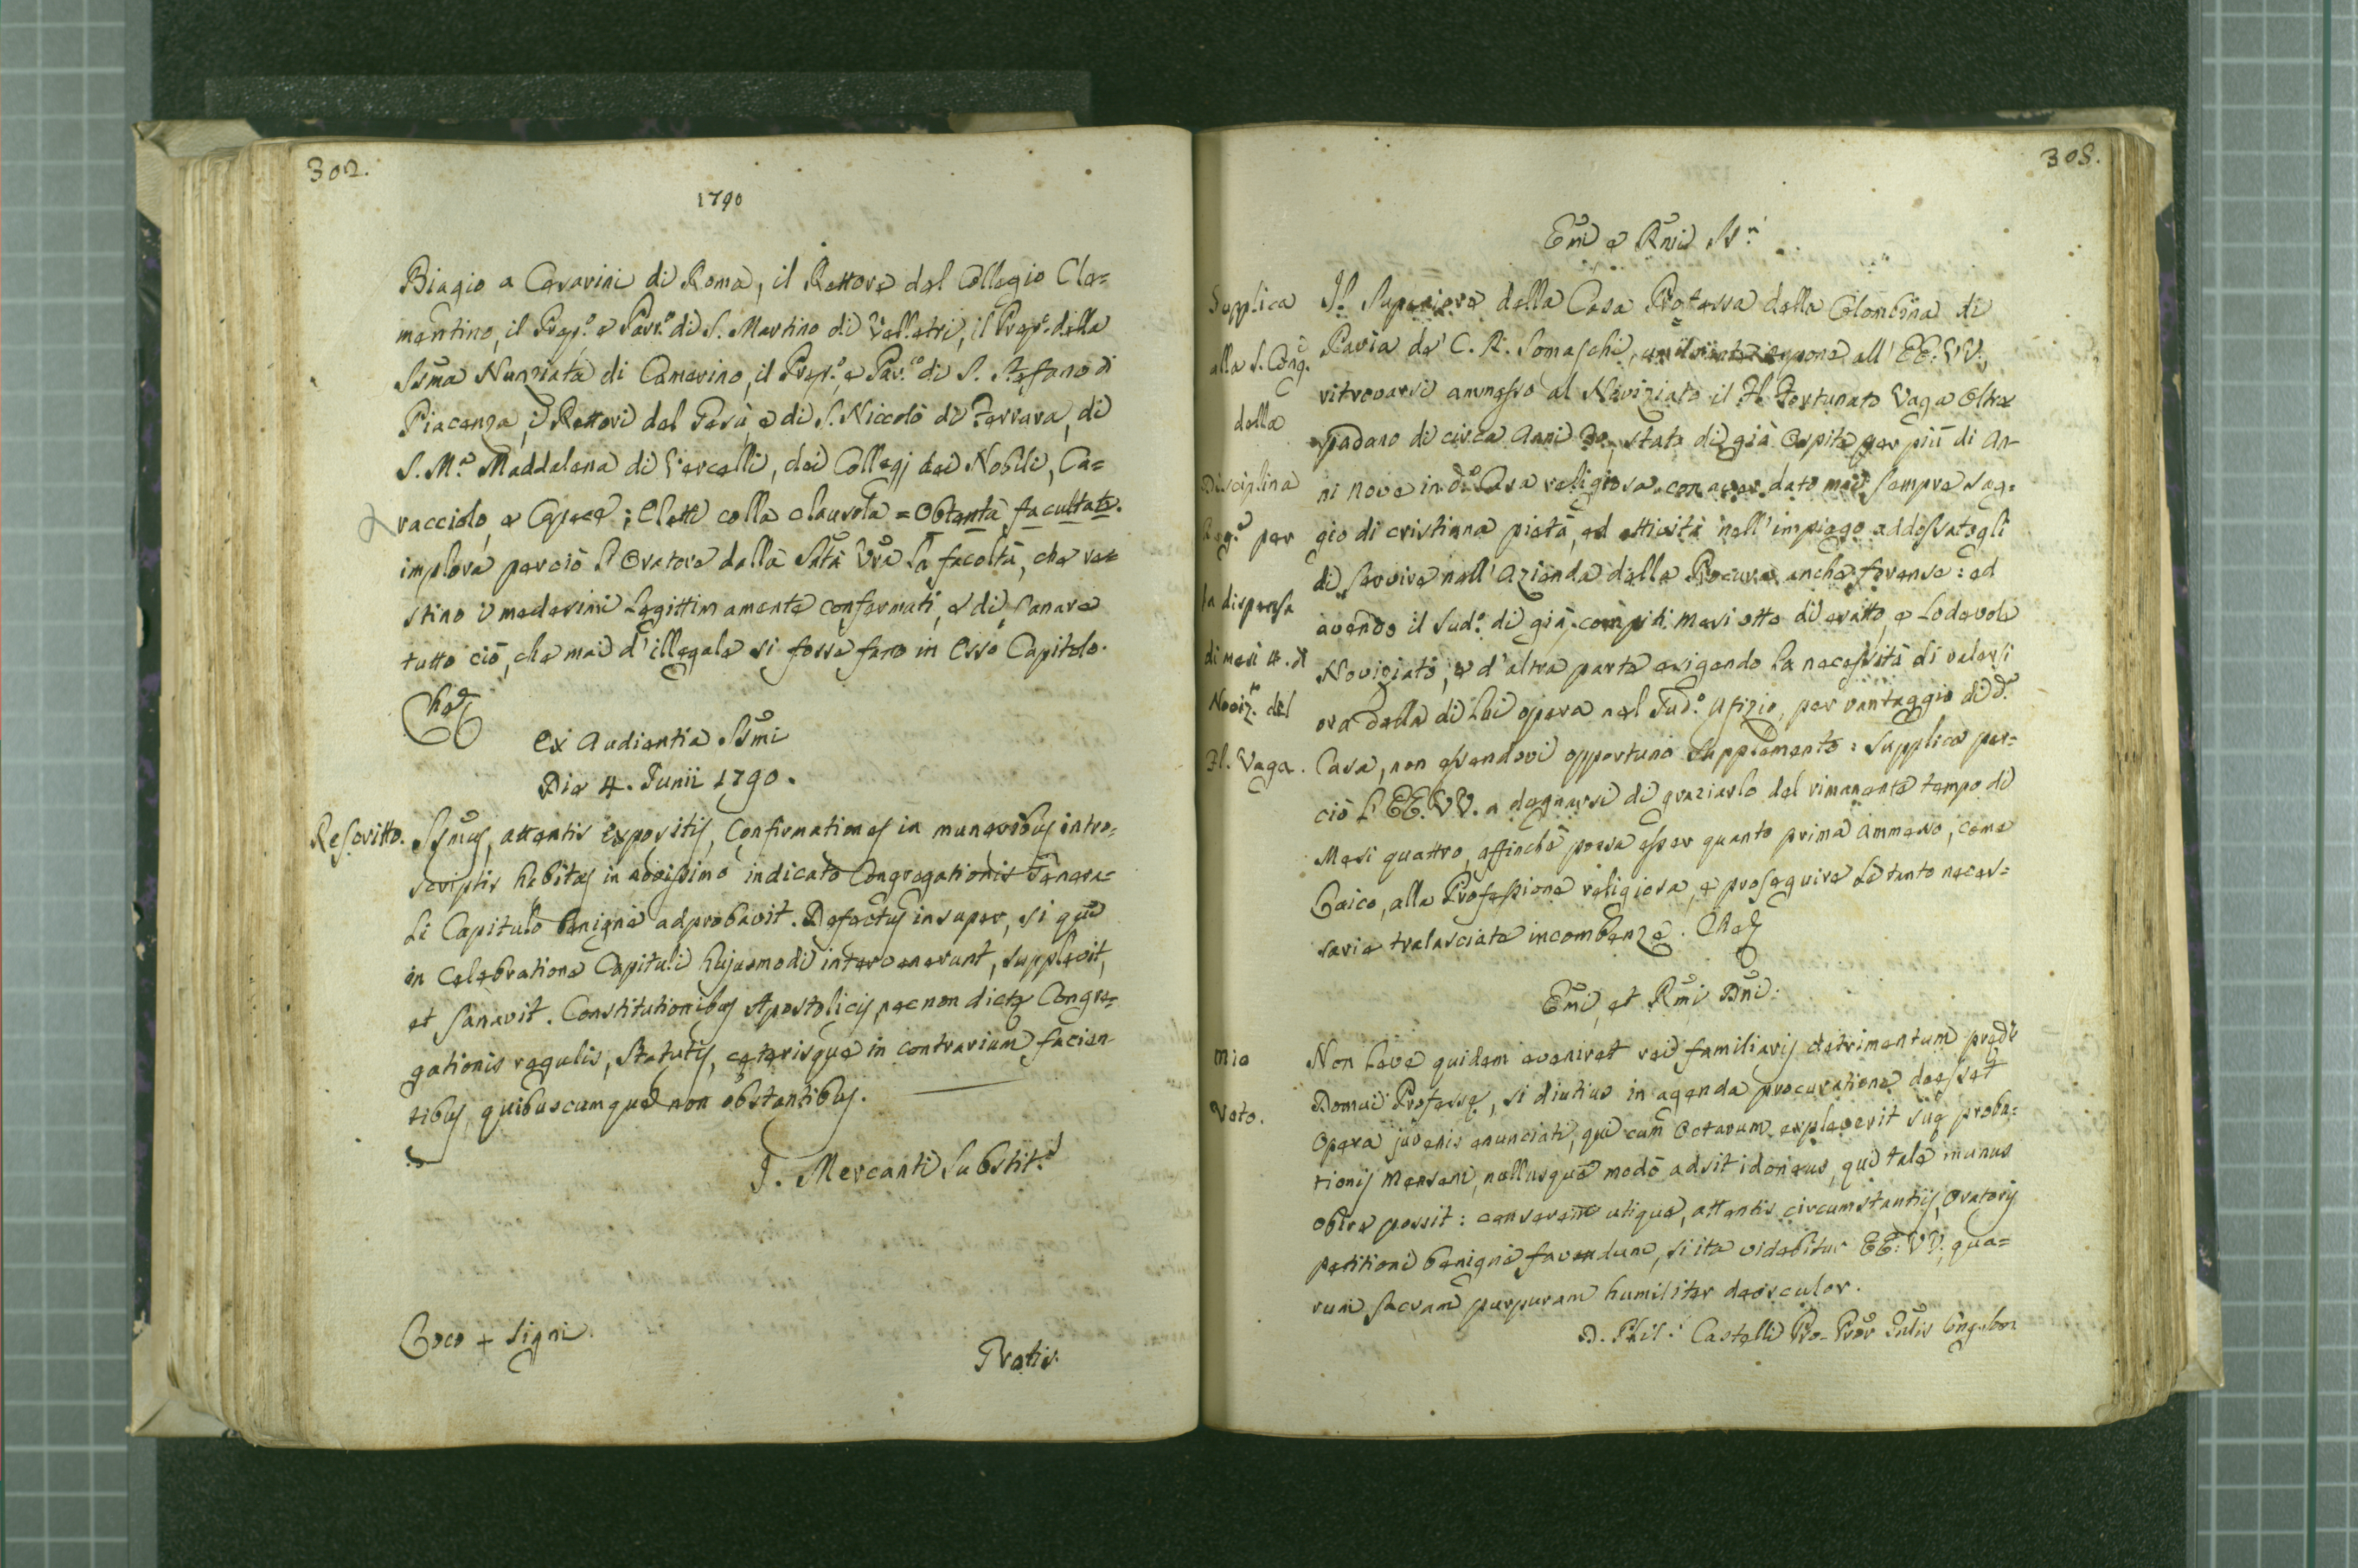 302.
1790
Biagio a Cesarini di Roma, il Rettore del Collegio Cle=
mentino, il Prep.o e Parr.o di S. Martino di Velletri, il Prep.o della
SSma Nunziata di Camerino, il Prep.o e Par.co di S. Stefano di
Piacenza, i Rettori del Gesù, e di S. Niccolò di Ferrara, di
S. M.a Maddalena di Vercelli, dei Collegj dei Nobili, Ca=
racciolo, e Capece; eletti colla clausola = Obtenta facultate.
implora perciò l'Oratore dalla Stà Vra la facoltà, che re=
stino i medesimi legittimamente confermati, e di sanare
tutto ciò, che mai d'illegale si fosse fatto in esso Capitolo.
Che
Ex Audientia SSmi
Die 4. Junii 1790.
Rescritto.
SSmus, attentis expositis, Confirmationes in muneribus intro=
scriptis habitas in novissimo indicato Congregationis Genera=
li Capitulo benigne adprobavit. Defectus insuper, si qui
in celebratione Capituli hujusmodi intervenerunt, supplevit,
et sanavit. Constitutionibus Apostolicis, nec non dictæ Congre=
gationis regulis, statutis, ceterisque in contrarium facien=
tibus, quibuscumque non obstantibus.
J. Mercanti Substit.s
Loco + Signi.
Gratis.
303.
Emi e Rmi SS.ri
Supplica
alla S. Cong.e
della
Disciplina
Reg.e per
la dispensa
di mesi 4. di
Noviz.to del
Fl. Vaga.
Il Superiore della Casa Professa della Colombina di
Pavia de' C. R. Somaschi, espone all' EE. VV.,
ritrovarsi ammesso al Noviziato il Fl. Fortunato Vaga Oltre
padano di circa Anni 30, stato di già Ospite per più di An-
ni nove in d.a Casa religiosa con aver dato mai sempre sag=
gio di cristiana pietà, ed attività nell'impiego addossatogli
di servire nell'Azienda della Procura anche forense: ed
avendo il sud.o di già compiti mesi otto di esatto, e lodevole
Noviziato, e d'altra parte esigendo la necessità di valersi
ora della di lui opera nel sud.o Ufizio, per vantaggio di d.a
Casa, non essendovi opportuno supplemento: supplica per=
ciò l'EE. VV. a degnarsi di graziarlo del rimanente tempo di
Mesi quattro, affinchè possa esser quanto prima ammesso, come
Laico, alla Professione religiosa, e proseguire le tanto neces=
sarie tralasciate incombenze. Che
Emi, et Rmi Dni:
Mio
Voto.
Non leve quidem eveniret rei familiaris detrimentum præd.æ
Domui Professæ, si diutius in agenda procuratione deesset
Opera juvenis enunciati, qui cum Octavum expleverit suæ proba=
tionis mensem, nullusque modò adsit idoneus, qui tale munus
obire possit: censerem utique, attentis circumstantiis, Oratoris
petitioni benigne favendum, si ita videbitur EE. VV. qua=
rum sacram purpuram humiliter deosculor.
D. Phil.s Castelli Pro- Pror Gnlis